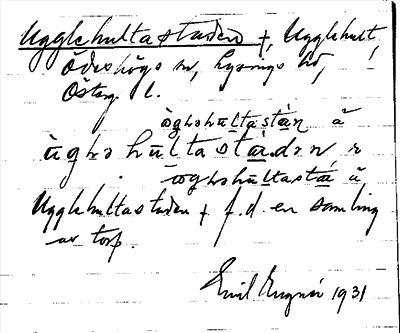 Ugglehultastaden +, Ugglehult,
Ödeshögs sn, Lysings hd, !
Österg. l.
òghəhu̲ltastá̲n ã
ùghəhu̲lta stá̲.dən r
òghəhu̲ltastá̲ ã
Ugglehultastaden + f.d. en samling
av torp.
Emil 1931